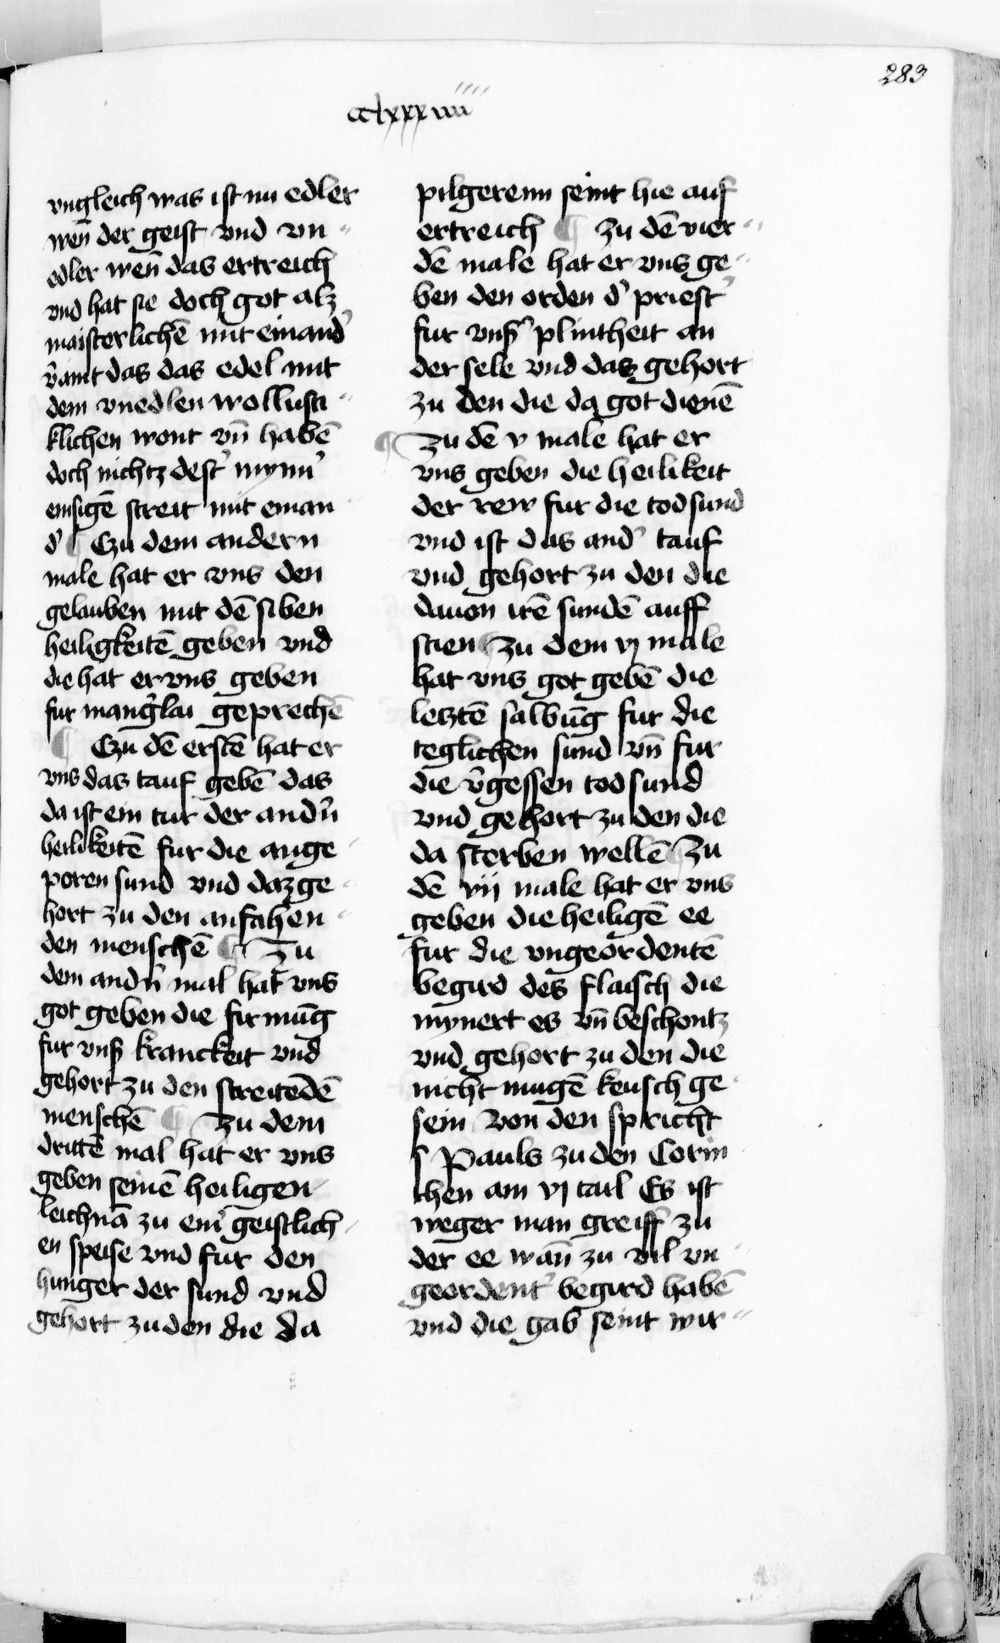 283
cclxxxiiii
vngleich was ist nu edler
wen̄ der geist vnd vn〃
edler wen̄ das ertreich
vnd hat sie doch got alz
maisterlichē mit einand᾽
v᾽aint das das edel mit
dem vnedlen wollusti〃
klichen wont vn̄ habē
doch nichtz dest᾽ mynn᾽
einsigē streit mit einan
d᾽ ¶ Czu dem andern
male hat er vns den
gelauben mit dē siben
heiligkeitē geben vnd
die hat er vns geben
fur mang᾽lai geprechē
¶ Czu dē erstē hat er
vns das tauf gebē das
da ist ein tur der and᾽n
heilikeitē fur die ange〃
poren sund vnd daz ge〃
hort zu den anfahen〃
den menschē ¶ Zu
dem and᾽n mal hat vns
got geben die firmūg
fur vnß kranckeit vnd
gehort zu den streitēdē
menschē ¶ Zu dem
drittē mal hat er vns
geben seinē heiligen
leichnā zu ein᾽ geistlich〃
en speise vnd fur den
hunger der sund vnd
gehort zu den die da
pilgerenn seint hie auf
ertreich ¶ Zu dē vier〃
dē male hat er vns ge〃
ben den orden d᾽ priest᾽
fur vnß᾽ plintheit an
der sele vnd das gehort
zu den die da got dienē
¶ Zu dē v male hat er
vns geben die heilikeit
der rew fur die todsund
vnd ist das and᾽ tauf
vnd gehort zu den die
dauon irē sundē auff
stien ¶ Zu dem vj male
hat vns got gebē die
letztē salbūg fur die
teglichen sund vn̄ fur
die v᾽gessen todsund
vnd gehort zu den die
da sterben wellē ¶ Zu
dē vij male hat er vns
geben die heiligē ee
fur die vngeordentē
begird des flaisch die
mynert es vn̄ beschontz
vnd gehort zu den die
nicht mugē keusch ge〃
sein Von den spricht
s Pauls zu den Corin
then am vj tail Es ist
weger man greiff zu
der ee wan̄ zu vil vn〃
geordent᾽ begird habē
vnd die gab seint wir〃